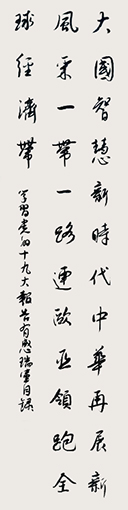 大國智慧新時代中華再展新
風采一帶一路連歐亞領跑全
球經濟帶
學習党的十九大報告有感瑞軍自録